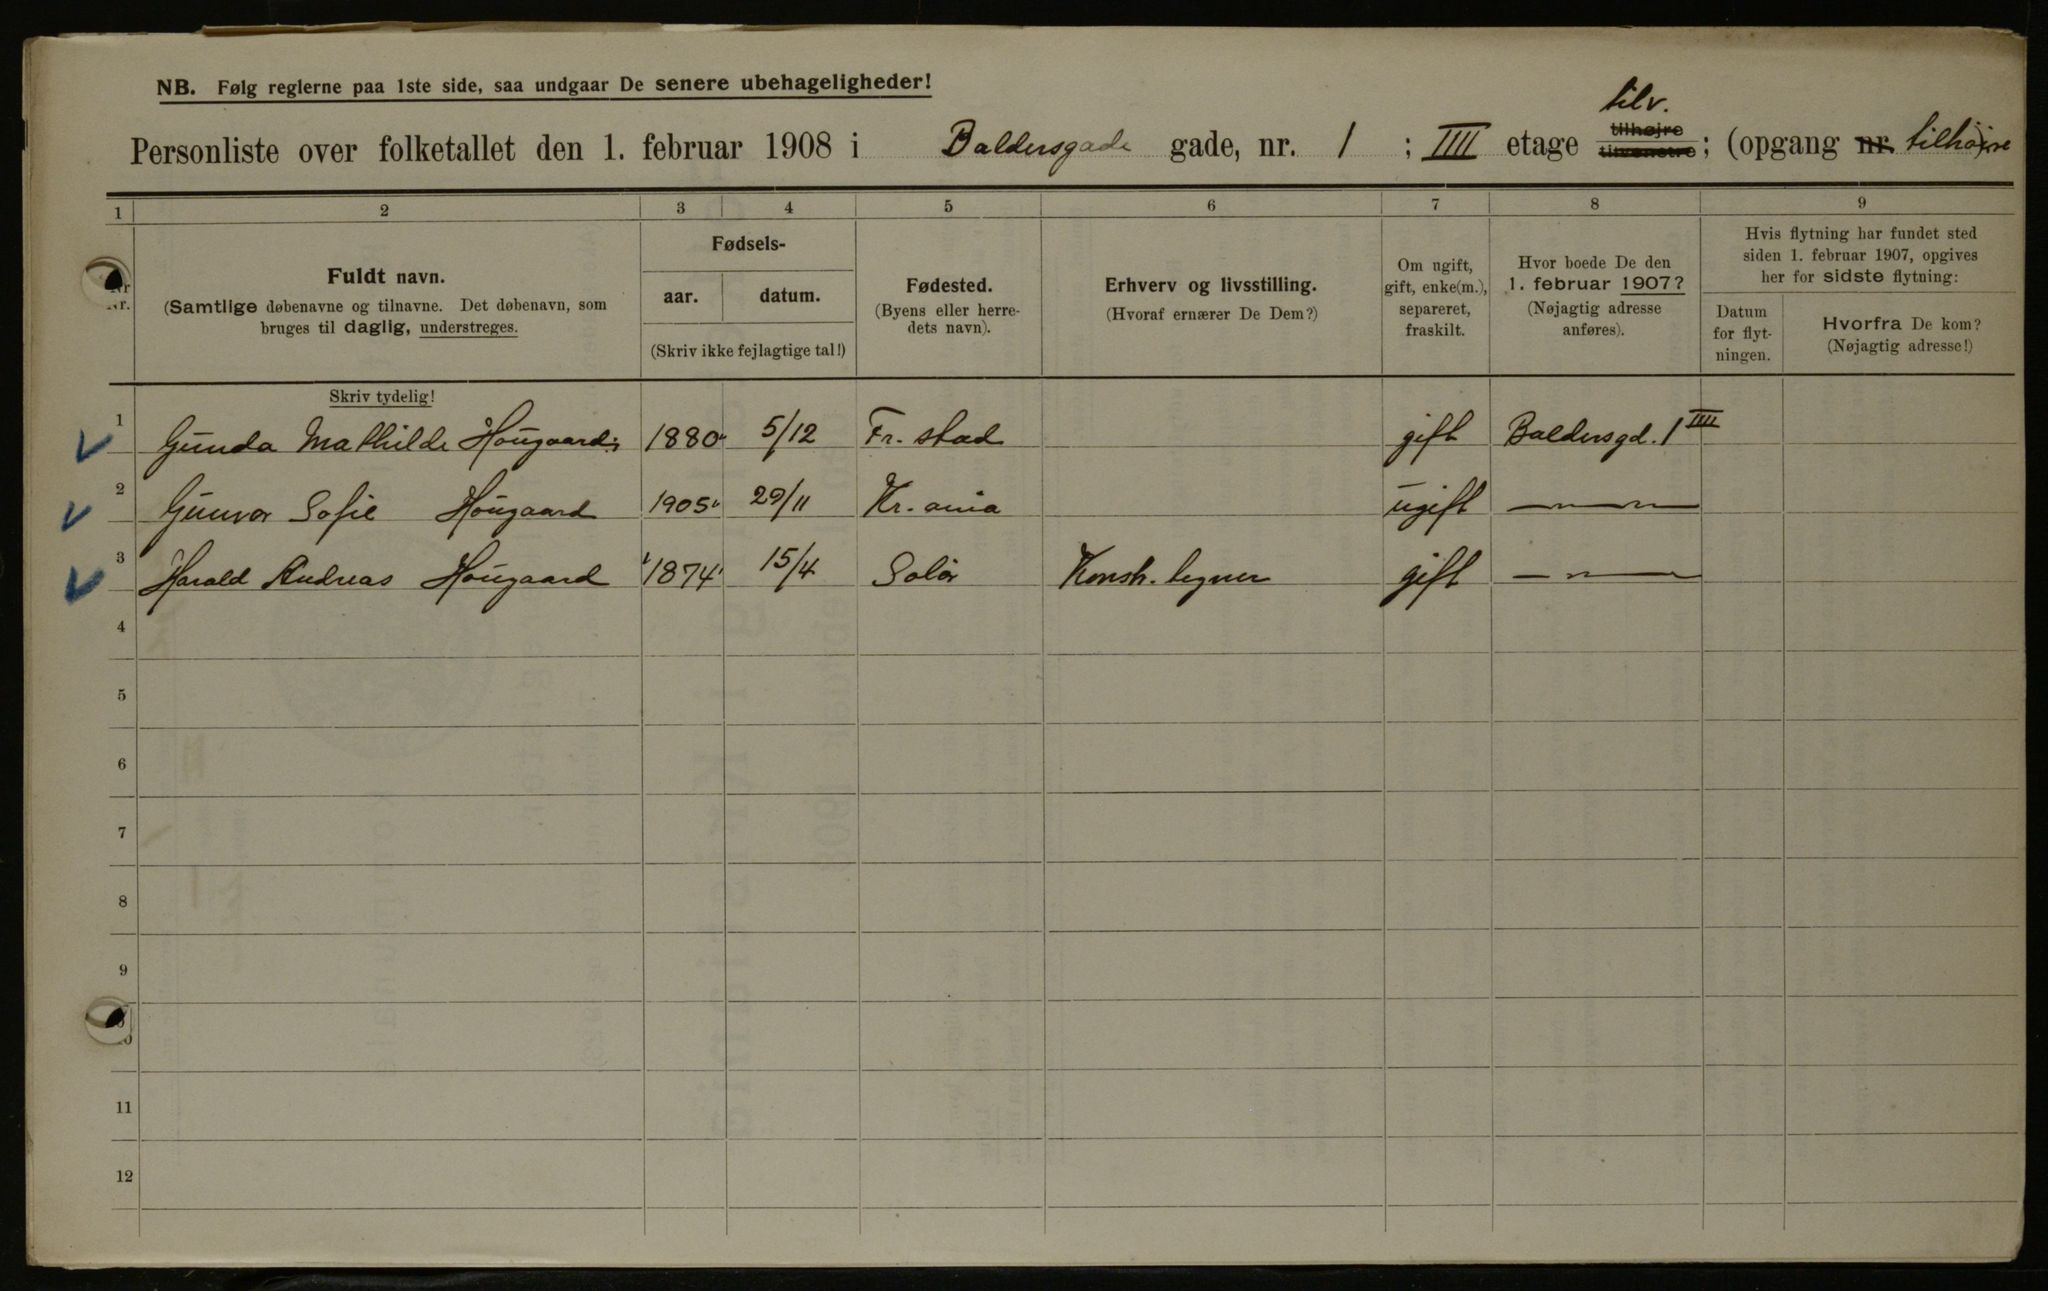 NB. Følg reglerne paa 1ste side, saa undgaar De senere ubehageligheder!
tilv.
Personliste over folketallet den 1. februar 1908 i Baldersgade gade, nr. 1 ; IIII etage tilhøjre tilvenstre ; (opgang nr. tilhøjre
1 2 3 4 5 6 7 8 9
Nr.
Fuldt navn.
(Samtlige døbenavne og tilnavne. Det døbenavn, som
bruges til daglig, understreges.
Fødsels-
aar. datum.
(Skriv ikke fejlagtige tal!)
Fødested.
(Byens eller herre-
dets navn).
Erhverv og livsstilling.
(Hvoraf ernærer De Dem?)
Om ugift,
gift, enke(m.),
separeret,
fraskilt.
Hvor boede De den
1. februar 1907?
(Nøjagtig adresse
anføres).
Hvis flytning har fundet sted
siden 1. februar 1907, opgives
her for sidste flytning:
Datum
for flyt-
ningen.
Hvorfra De kom?
(Nøjagtig adresse!)
Skriv tydelig!
1 Gunda Mathilde Hougaard 1880 5/12 Fr. stad gift Baldersgd. 1 IIII
2 Gunvor Sofie Hougaard 1905 29/11 Kr. ania ugift — „ — „ —
3 Harald Andreas Hougaard 1874 15/4 Solør gift — „ —
4
5
6
7
8
9
10
11
12